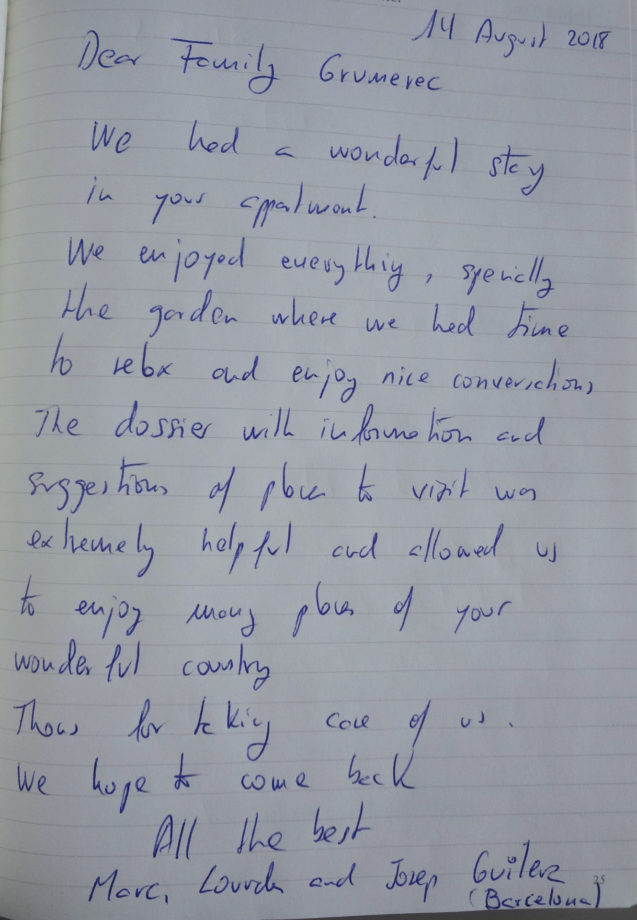 14 August 2018
Dear Family Grumerec
We had a wonderful stay
in your appartment.
We enjoyed everything, specially
the garden where we had time
to relax and enjoy nice conversations
The dossier with information and
suggestions of places to visit was
extremely helpful and allowed us
to enjoy many places of your
wonderful country
Thows for taking care of us.
We hope to come back
All the best
Marc, Lourdes and Josep Guilera
(Barcelona)
25